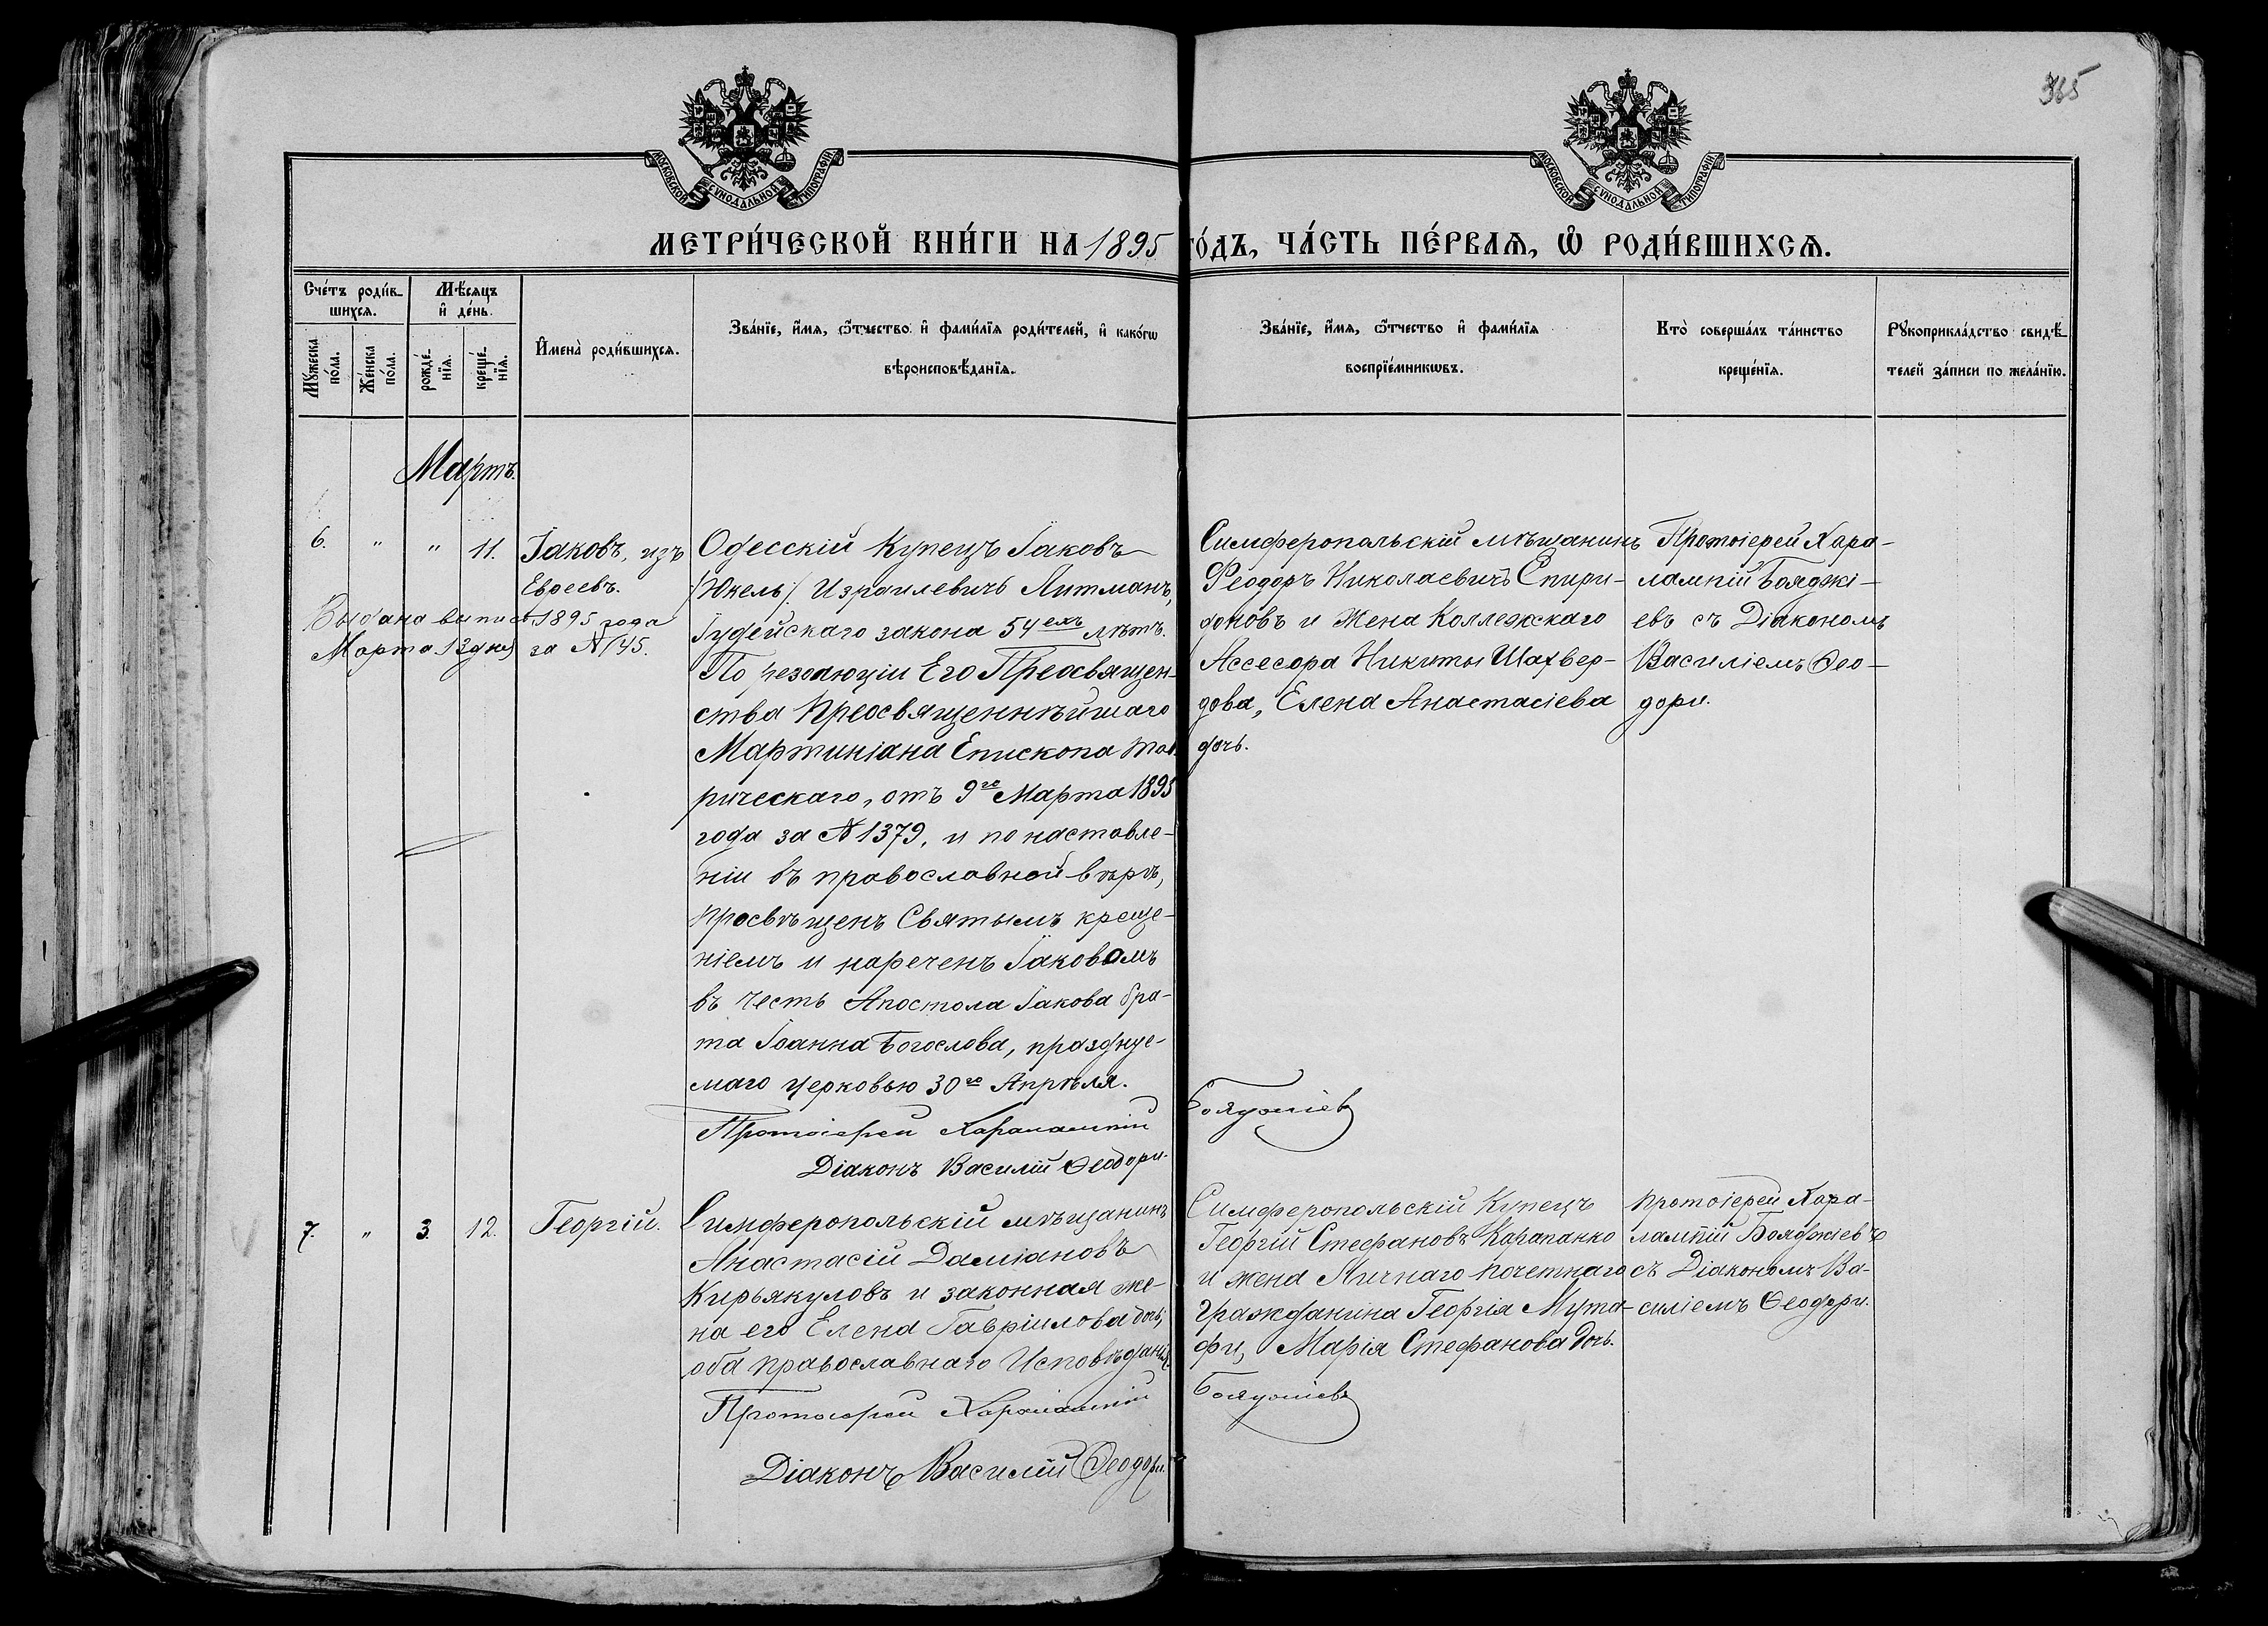 365
МОСКОВСКОЙ СѴНОДАЛЬНОЙ ТИПОГРАФІИ
МОСКОВСКОЙ СѴНОДАЛЬНОЙ ТИПОГРАФІИ
МЕТРИ́ЧЕСКОЙ КНИ́ГИ НА 1895 ГО́ДЪ, ЧА́СТЬ ПЕ́РВАѦ, Ѽ РОДИ́ВШИХСѦ.
Сче́тъ роди́в-
шихсѧ.
Мꙋ́жеска
по́ла.
Же́нска
по́ла.
Мѣ́сѧцъ
и҆ де́нь.
рожде́-
нїѧ.
креще́-
нїѧ.
И҆мена̀ роди́вшихсѧ.
Зва́нїе, и҆́мѧ, ѻ҆́тчество и҆ фами́лїѧ роди́телей, и҆ како́гѡ
вѣроисповѣ́данїѧ.
Зва́нїе, и҆́мѧ, ѻ҆́тчество и҆ фами́лїѧ
воспрїе́мникѡвъ.
Кто̀ соверша́лъ та́инство
креще́нїѧ.
Рꙋкоприкла́дство свидѣ́-
телей за́писи по жела́нїю.
Мартъ.
6. " " 11.
Іаковъ, изъ
Евреевъ.
Выдана выпись 1895 года
Марта 13 дня за № 45.
Одесскій Купецъ Іаковъ
/Юкель/ Израилевичъ Литманъ,
Іудейскаго закона 54 ехъ лѣтъ.
По резолюціи Его Преосвящен-
ства Преосвященнѣйшаго
Мартиніана Епископа Тав-
рическаго, отъ 9го Марта 1895
года за № 1379, и по наставле-
ніи въ православной вѣрѣ,
просвѣщенъ Святымъ креще-
ніемъ и нареченъ Іаковомъ
въ честь Апостола Іакова бра-
та Іоанна Богослова, празднуе-
маго церковью 30го Апрѣля.
Протоіерей Харалампій Бояджіевъ
Діаконъ Василій Ѳеодори.
Симферопольскій мѣщанинъ
Ѳеодоръ Николаевичъ Спири-
доновъ и Жена Коллежскаго
Ассесора Никиты Шахвер-
дова, Елена Анастасіева
дочь.
Протоіерей Хара-
лампій Бояджі-
евъ съ Діакономъ
Василіемъ Ѳео-
дори.
7. " 3. 12.
Георгій.
Симферопольскій мѣщанинъ
Анастасій Даміановъ
Кирьякуловъ и законная же-
на его Елена Гавріилова дочь,
оба православнаго Исповѣданія.
Протоіерей Харалампій Бояджіевъ
Діаконъ Василій Ѳеодори.
Симферопольскій Купецъ
Георгій Стефановъ Карапанко
и жена Личнаго почетнаго
Гражданина Георгія Мута-
фи, Марія Стефанова дочь.
Протоіерей Хара-
лампій Бояджіевъ
съ Діакономъ Ва-
силіемъ Ѳеодори.